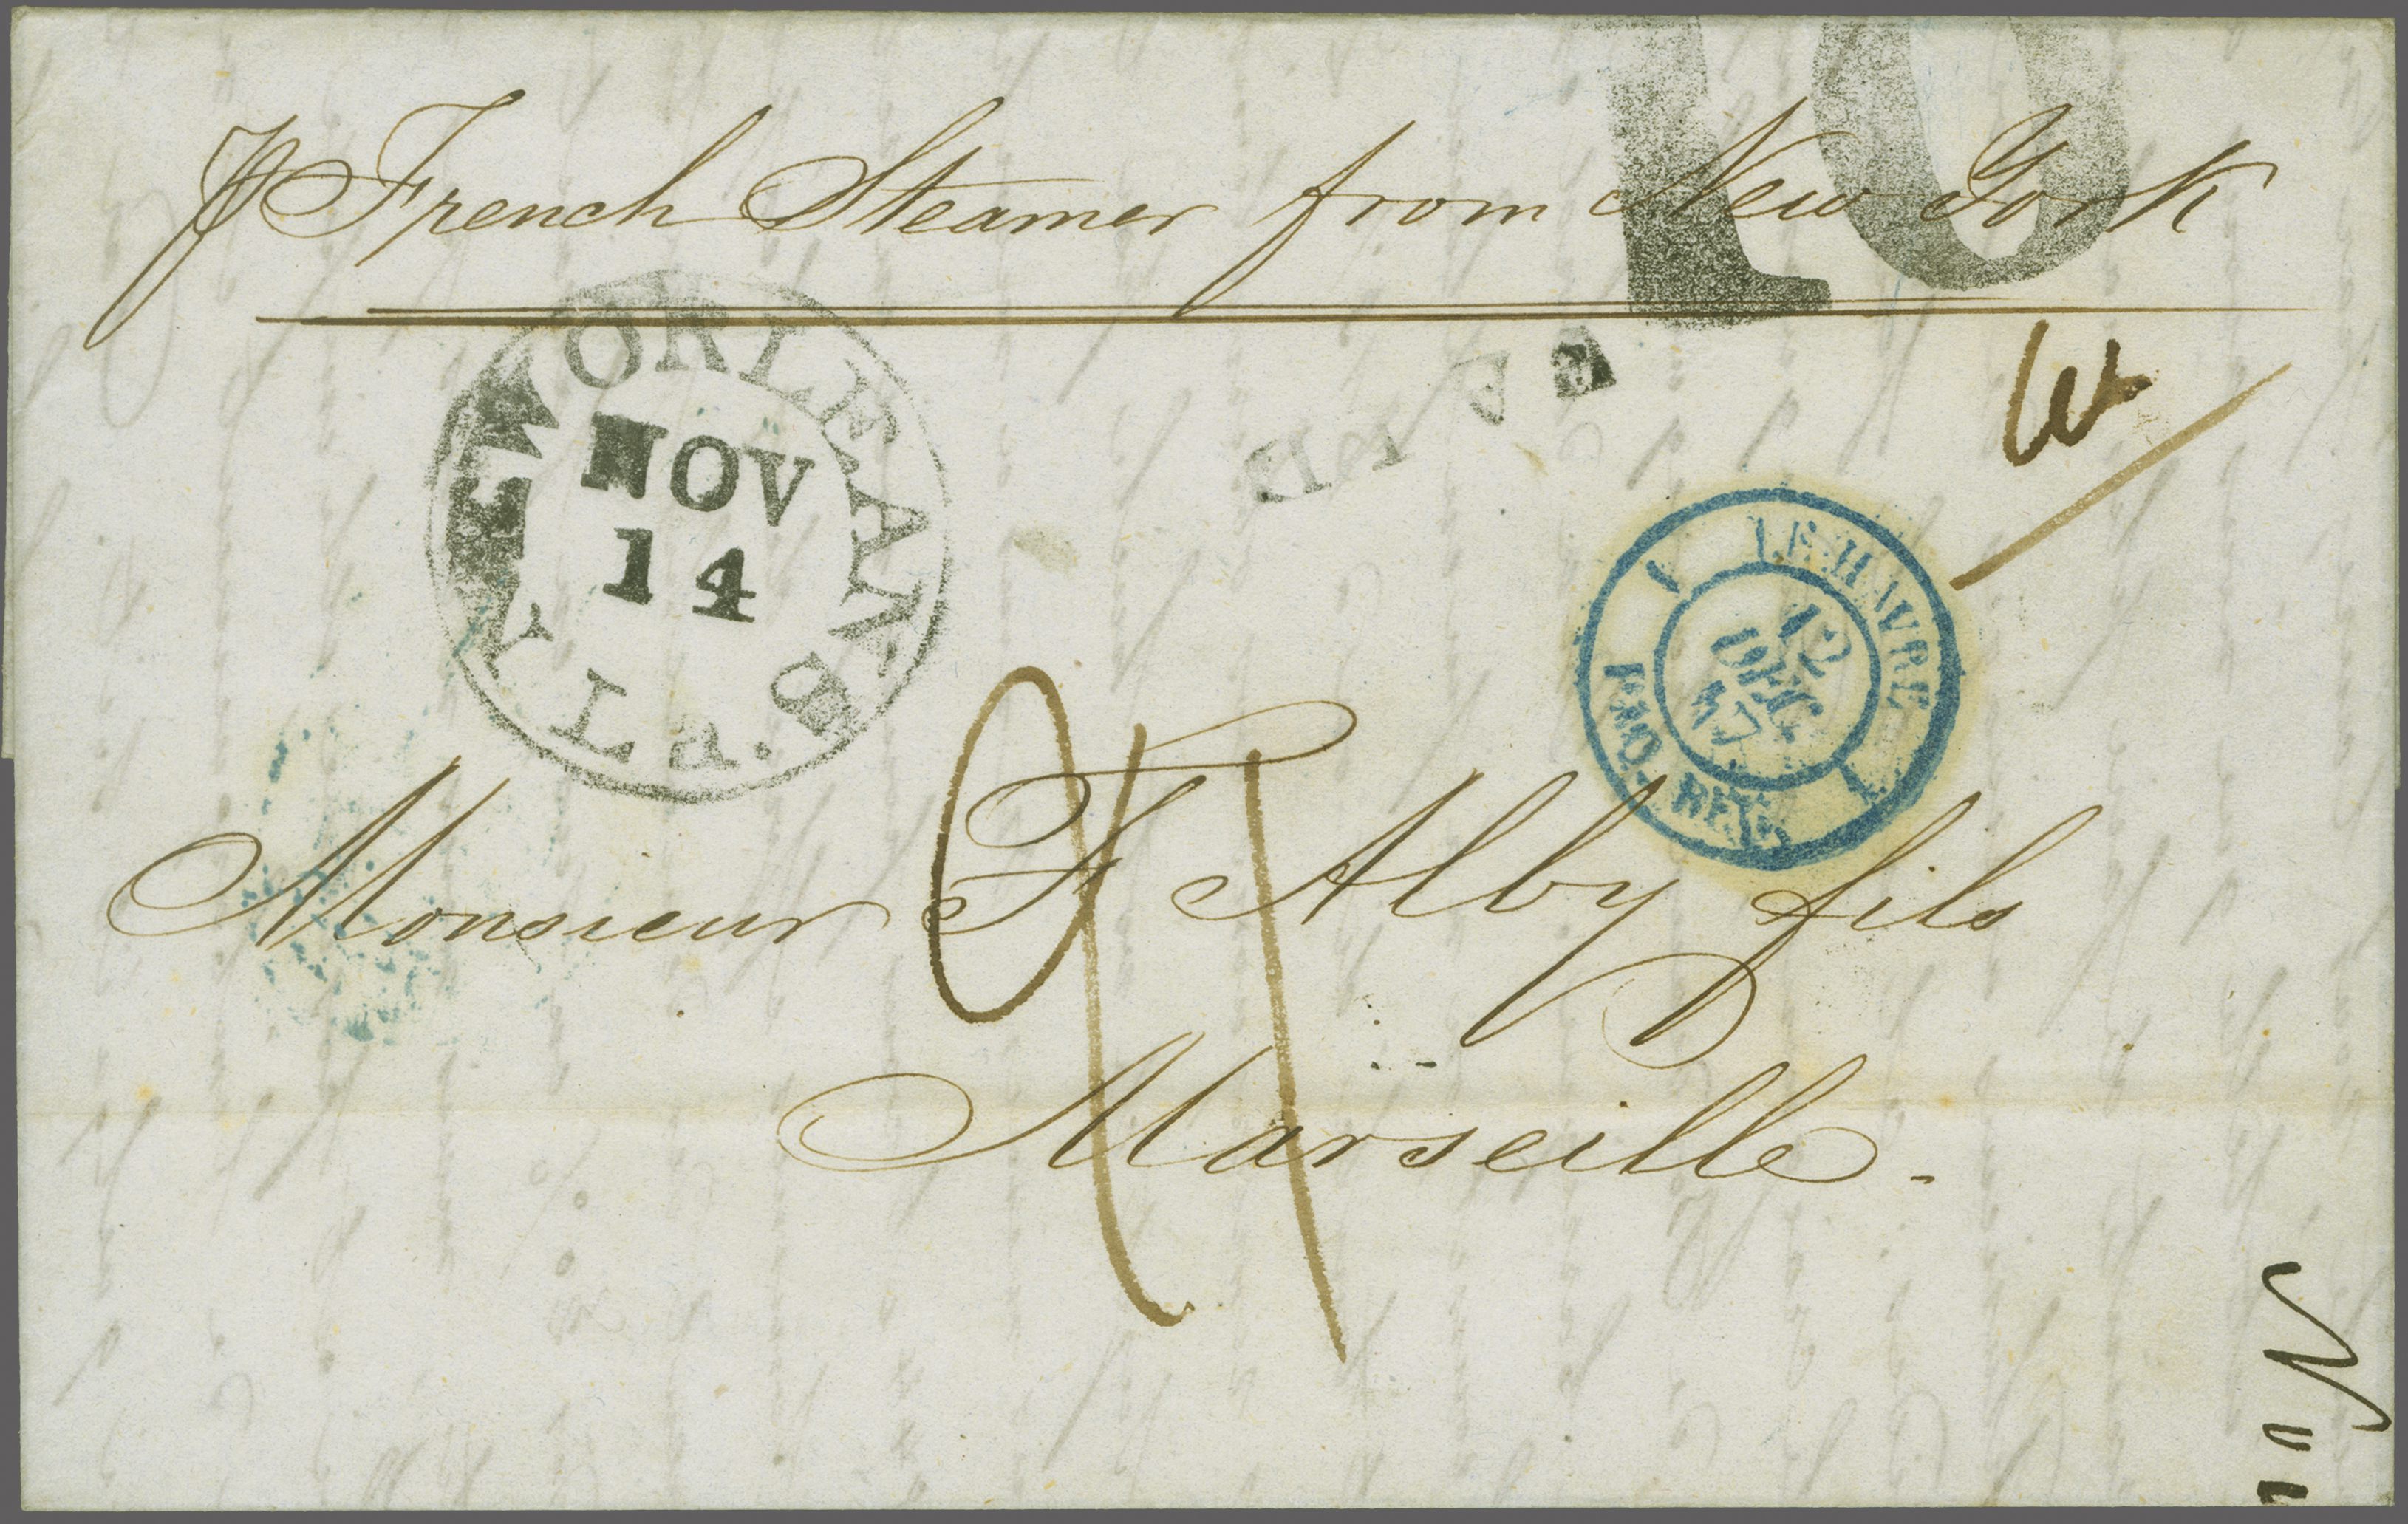 10
p French Steamer from New York
NEW ORLEANS La.
NOV
14
PAID
LE HAVRE
12
DEC.
47
PAQ. REG.
Monsieur F Alby fils
Marseille.